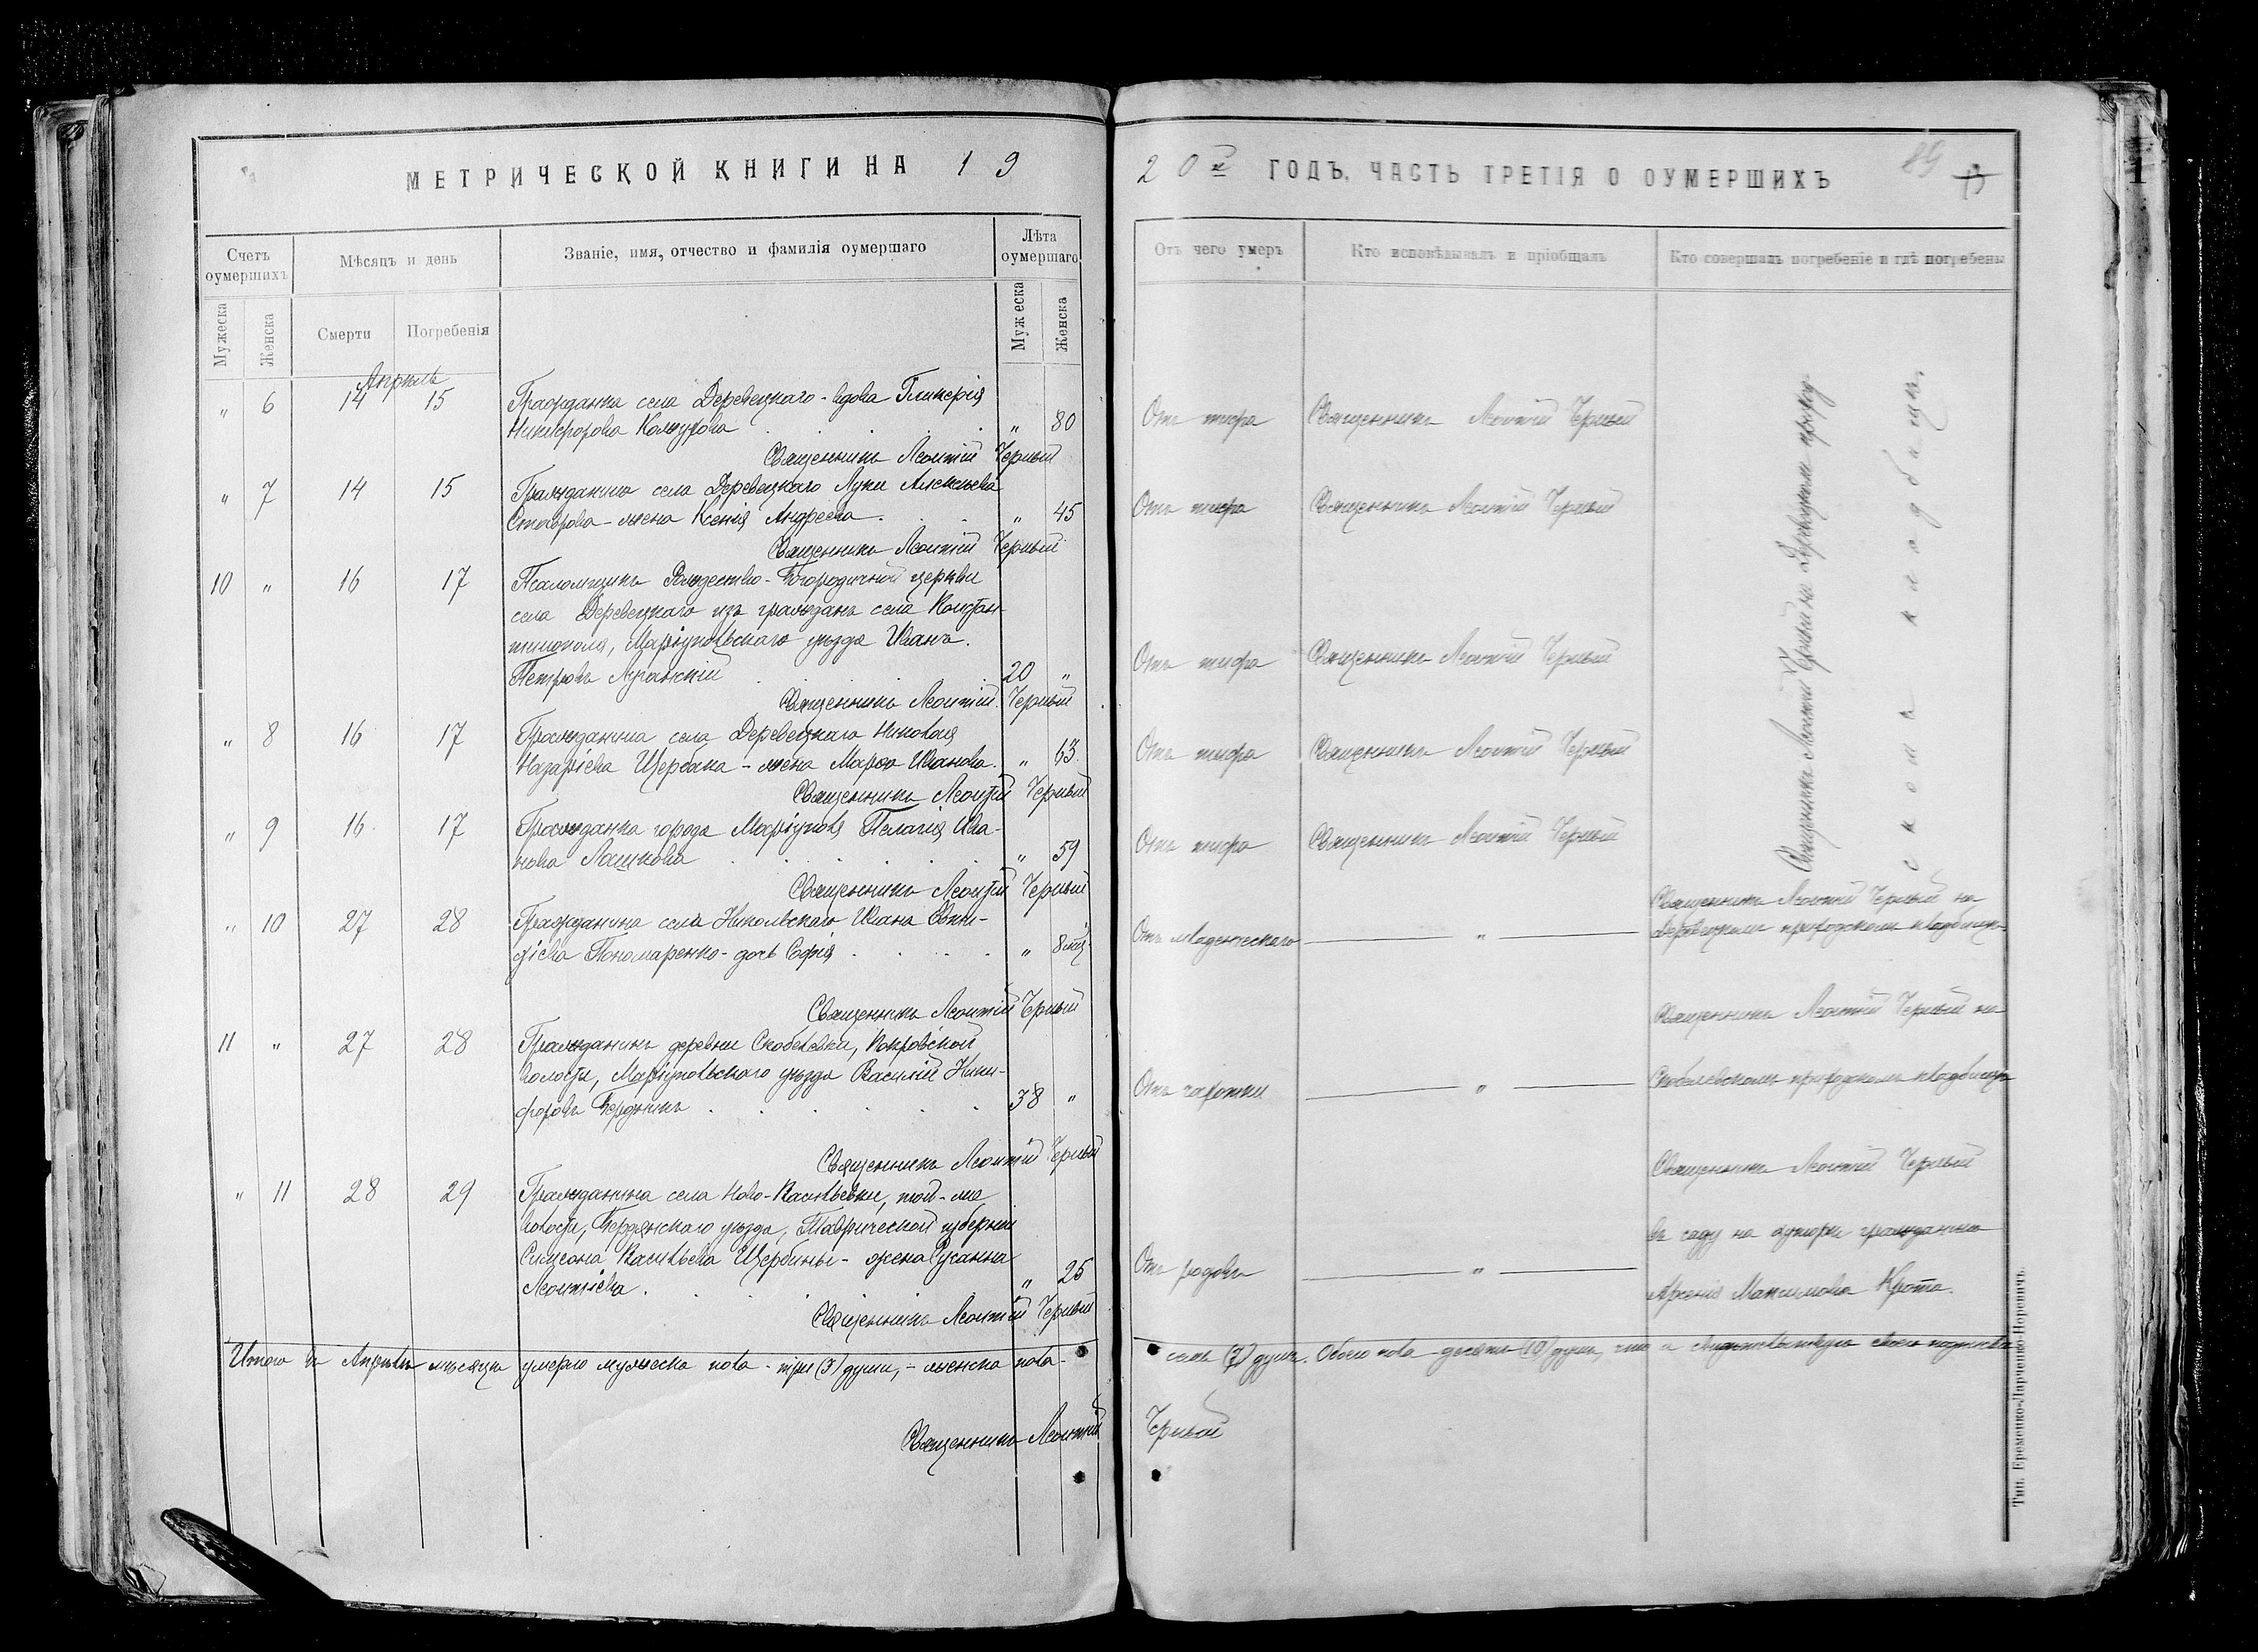 МЕТРИЧЕСКОЙ КНИГИ НА 19
Счетъ оумершихъ
Мѣсяцъ и день
Званіе, имя, отчество и фамилія оумершаго
Лѣта оумершаго
Мужеска
Женска
Смерти
Погребенія
Мужеска
Женска
Апрель
" 6 14 15 Гражданка села Деревецкаго - вдова Гликерія
Никифорова " 80
Священникъ Леонтій Черный
" 7 14 15 Гражданина села Деревецкаго Луки Алексѣева
жена Ксенія Андреева " 45
Священникъ Леонтій Черный
10 " 16 17 Псаломщикъ Рождество-Богородичной церкви
села Деревецкаго изъ гражданъ села Констан-
тинополя, Маріупольскаго уѣзда Иванъ
Петровъ Луганскій 20 "
Священникъ Леонтій Черный
" 8 16 17 Гражданина села Деревецкаго Николая
Назаріева Щербака - жена Марѳа Иванова. " 63
Священникъ Леонтій Черный
" 9 16 17 Гражданка города Маріуполя Пелагія Ива-
нова Лашкова " 59
Священникъ Леонтій Черный
" 10 27 28 Гражданина села Никольскаго Ивана
Пономаренко - дочь Софія " 8 мѣс.
Священникъ Леонтій Черный
11 " 27 28 Гражданинъ деревни Скобелевки, Покровской
волости, Маріупольскаго уѣзда Василій Ники-
форовъ Бердникъ 38 "
Священникъ Леонтій Черный
" 11 28 29 Гражданина села Ново-Васильевки, той-же
волости, Бердянскаго уѣзда, Таврической губерніи
Симеона Васильева Щербины - жена Сусанна
Леонтіева " 25
Священникъ Леонтій Черный
Итого въ Апрѣлѣ мѣсяцѣ умерло мужеска пола - три (3) души, - женска пола -
Священникъ Леонтій
20 ГОДЪ, ЧАСТЬ ТРЕТІЯ О ОУМЕРШИХЪ
89
Отъ чего умеръ
Кто исповѣдывалъ и пріобщалъ
Кто совершалъ погребеніе и гдѣ погребены
Отъ тифа Священникъ Леонтій Черный
Отъ тифа Священникъ Леонтій Черный
Отъ тифа Священникъ Леонтій Черный
Отъ тифа Священникъ Леонтій Черный
Отъ тифа Священникъ Леонтій Черный
Священникъ Леонтій Черный на Деревецкомъ приход-
скомъ кладбищѣ
Священникъ Леонтій Черный на
Отъ младенческаго " Деревецкомъ приходскомъ кладбищѣ
Священникъ Леонтій Черный на
Отъ чахотки " Скобелевскомъ приходскомъ кладбищѣ
Священникъ Леонтій Черный
въ саду на хуторѣ гражданина
Отъ родовъ " Арсенія Максимова Крота.
семь (7) душъ. Обоего пола десять (10) душъ, что и
Черный
Тип. Еременко-Парченко-Воровичъ.